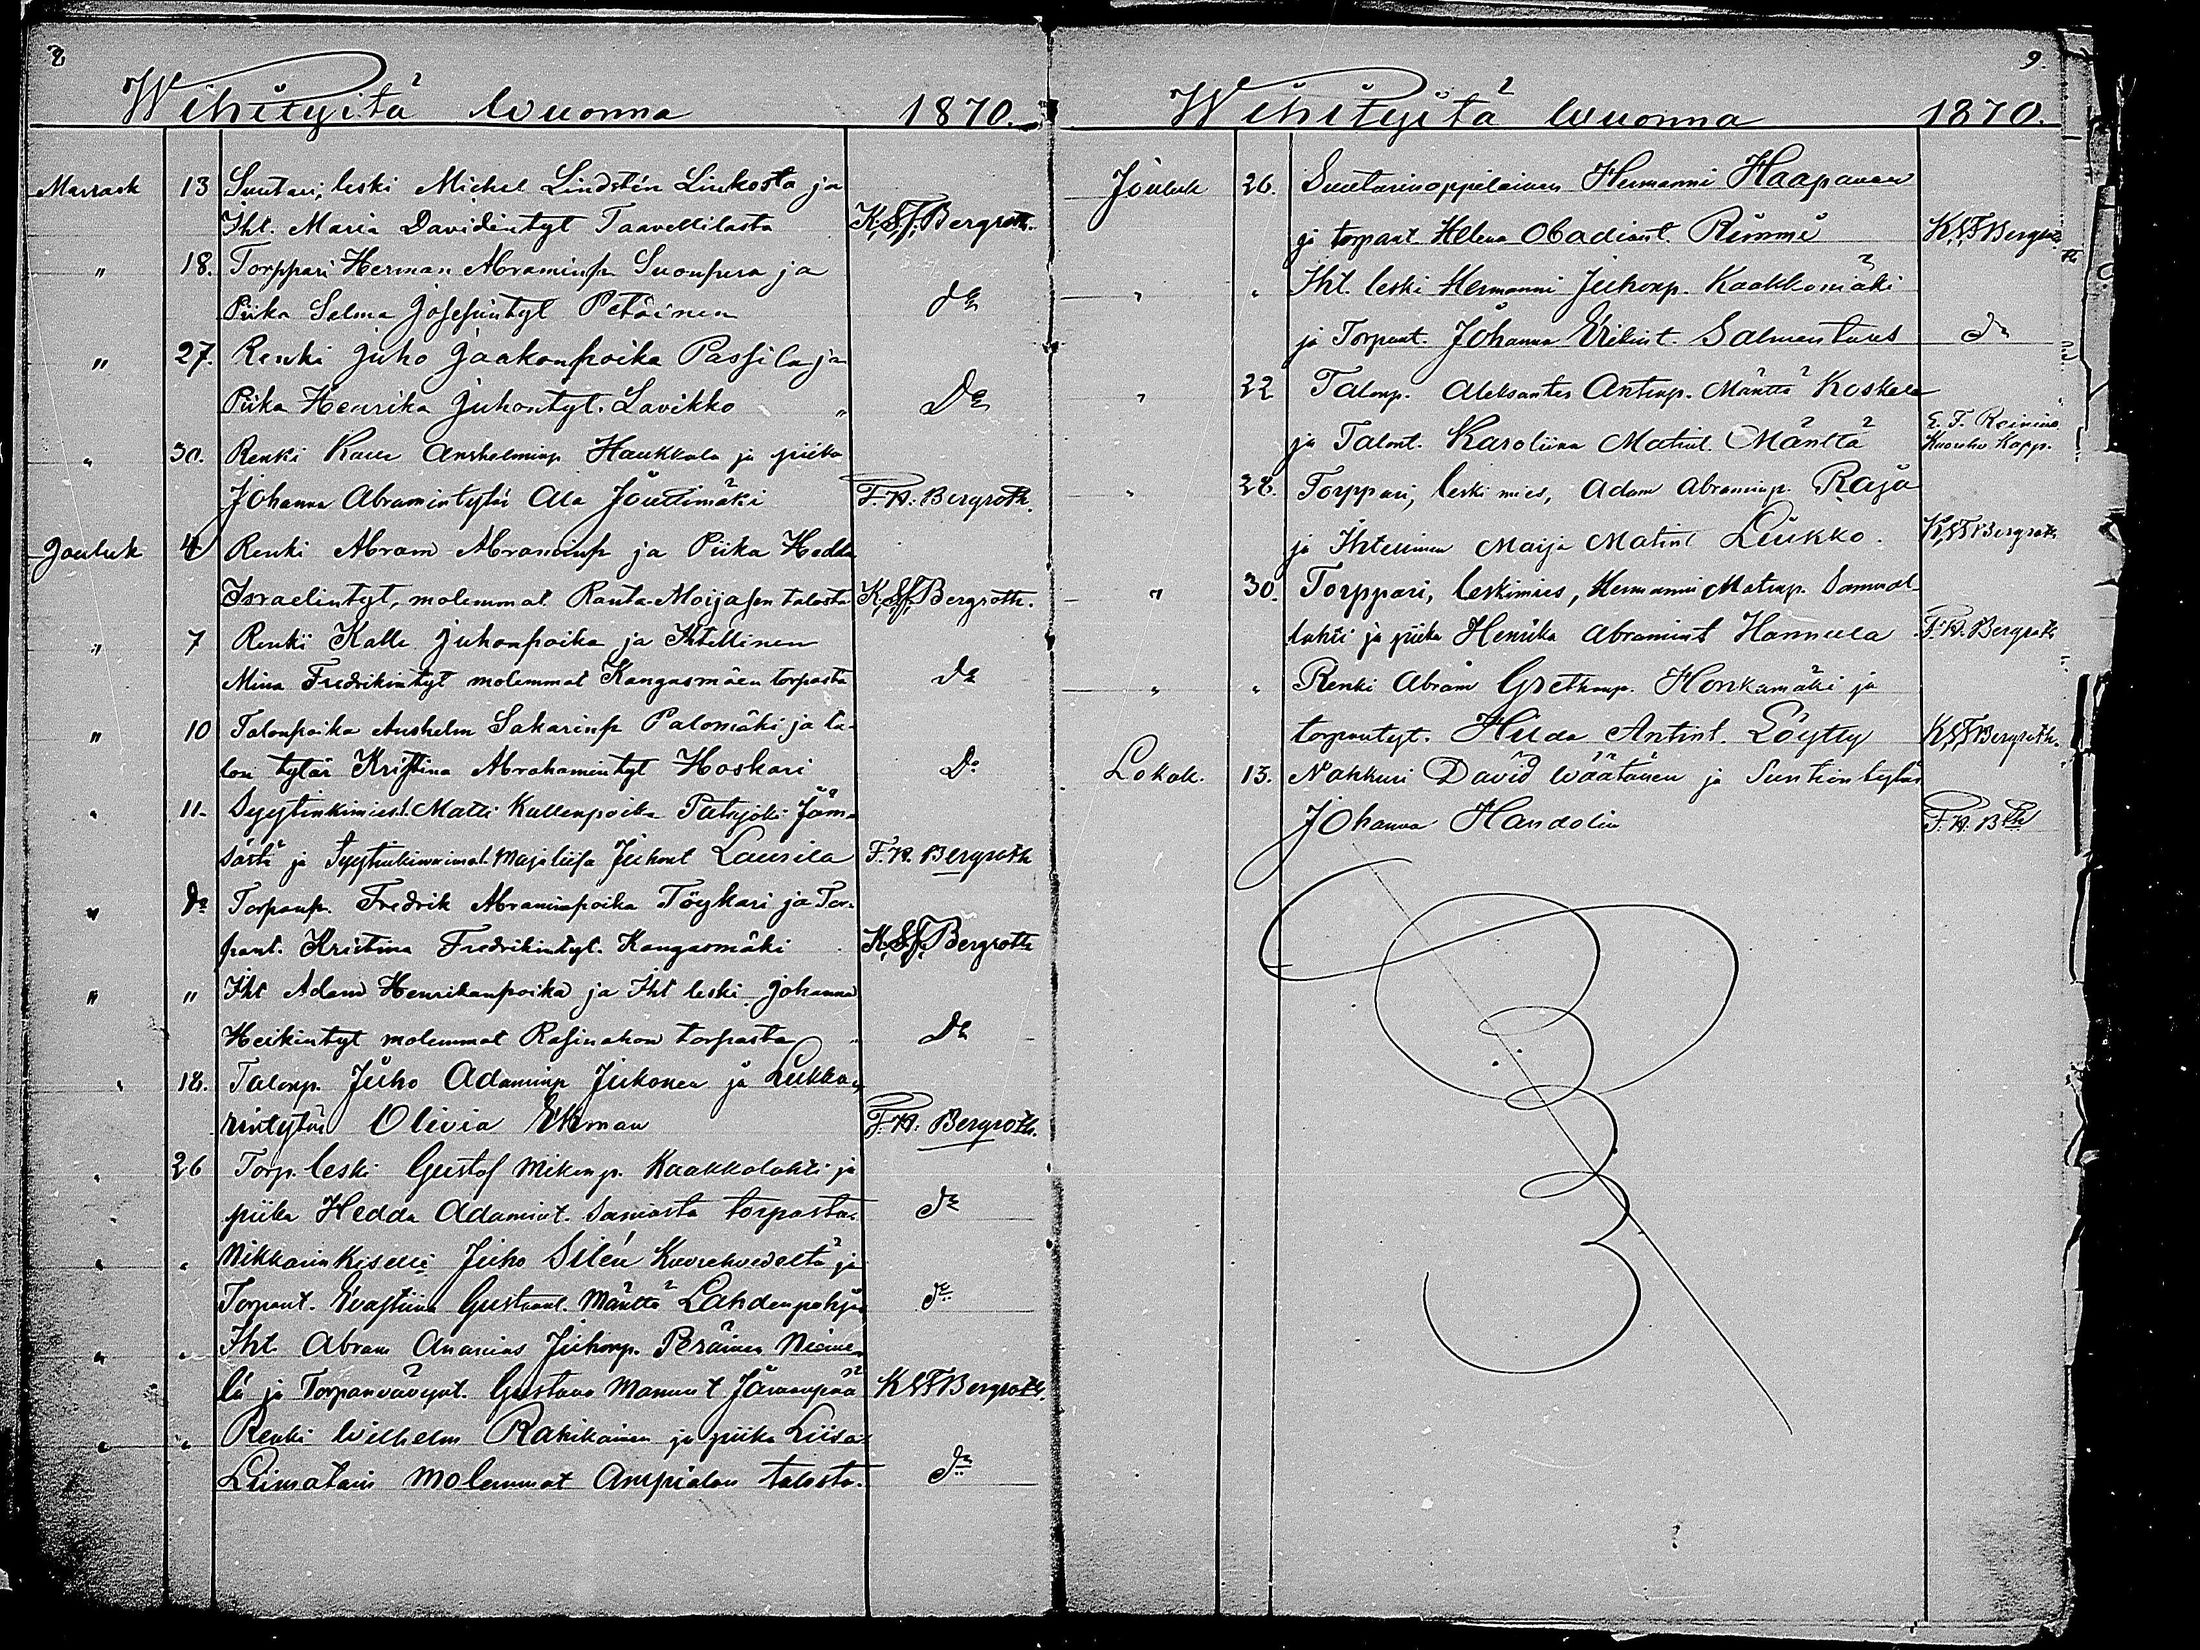 8
Wihityitä wuonna 1870.
Marrask 13 Suutari, leski Michel Lindstén Liukosta ja
Iht. Maria Davidintyt Taavettilasta K. S. F. Bergroth.
" 18. Torppari Herman Abraminp. Suonpera ja
Piika Selma Josefintyt Petäinen do
" 27. Renki Juho Jaakonpoika Passila ja
Piika Henrika Juhontyt. Lavikko Do
" 30. Renki Kalle Anshelminp Haukkala ja piika
Johanna Abramintytär Ala Jouttimäki F. H. Bergroth.
Jouluk 4 Renki Abram Abraminp ja Piika Hedda
Israelintyt, molemmat Ranta-Moijasen talosta K. S. F. Bergroth.
" 7 Renki Kalle Juhonpoika ja Ihtellinen
Miina Fredrikintyt molemmat Kangasmäen torpasta do
" 10 Talonpoika Anshelm Sakarinp Palomäki ja ta-
lon tytär Kristina Abrahamintyt Hoskari Do
" 11. Syytinkimies Matti Kallenpoika Patajoki Jäm-
säsä ja Syytinkivaimo Majaliisa Juhont Lausila F. H. Bergroth
" do Torpanp. Fredrik Abraminpoika Töykari ja Tor-
pant. Kristina Fredrikintyt. Kangasmäki K. S. F. Bergroth
" " Iht Adam Henrikanpoika ja Iht leski Johanna
Heikintyt molemmat Rasinahon torpasta Do
" 18. Talonp. Juho Adaminp Jukonen ja Lukka-
rintytär Olivia Ekman F. H. Bergroth.
" 26 Torp. leski Gustaf Mikonp. Kaakkolahti ja
piika Hedda Adamint. samasta torpasta do
" " Nikkarinkiselli Juho Silén Kuorehwedeltä ja
Torpant. Evastiina Gustavint. Mänttä Lahdenpohja do
" " Iht. Abram Ananias Juhonp. Peräinen Nieme-
lä ja Torpanvävynt. Gustava Manuut Jäväänpää K S F Bergroth.
" " Renki Wilhelm Rahikainen ja piika Liisa
Liimatain molemmat Ampialan talosta. do
9.
Wihityitä wuonna 1870.
Jouluk 26. Suutarinoppilainen Hermanni Haapanen
ja torpant Helena Obadiant. Rimmi K S F Bergroth
" " Iht. leski Hermanni Juhonp. Kaakkomäki
ja Torpant. Johanna Erikint. Salmentaus do
" 22 Talonp. Aleksanter Antinp. Mänttä Koskela
ja Talont. Karoliina Matint. Mänttä E. F. Reinius Kuorehv Kapp.
" 28. Torppari, leski mies, Adam Abraminp. Raja
ja Ihtellinen Maija Matint Liukko. K S F Bergroth
" 30. Torppari, leskimies, Hermanni Matinp. Samual
lahti ja piika Henrika Abramint Hannula F. H. Bergroth
" " Renki Abram Gretkanp. Honkamäki ja
torpantyt. Hilda Antint. Löytty K S F Bergroth.
Lokak. 13. Nahkuri David Wäätänen ja Suntion tytär
Johanna Handolin F. H. Bth